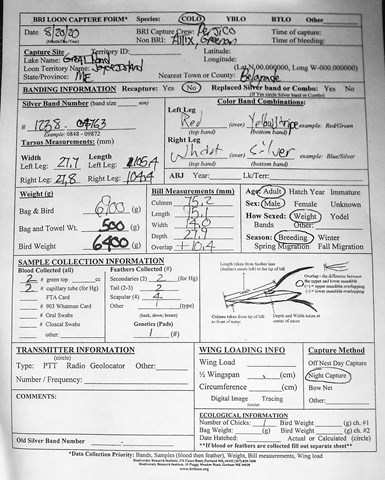 BRI LOON CAPTURE FORM* Species: COLO YBLO RTLO Other
Date: 8/20/20 BRI Capture Crew: Persico Time of capture:
(Month/Day/Year) Non BRI: Attix, Time of bleeding:
Capture Site Territory ID: Latitude:
Lake Name: Great Pond Longitude:
Loon Territory Name: Joyce Island (Lat N 00.00000, Long W-000.00000)
State/Province: ME Nearest Town or County: Belgrade
BANDING INFORMATION Recapture: Yes No Replaced Silver Band or Combo? Yes No
(If Yes circle Silver band or Combo)
Silver Band Number (band size) Color Band Combinations:
Left Leg
# Red (over) Yellow stripe example: Red/Green
Example: 0848 - 09872 (top band) (bottom band)
Tarsus Measurements: (mm) Right Leg
Width Length White (over) Silver example: Blue/Silver
Left Leg: 27.7 Left Leg: 105.4 (top band) (bottom band)
Right Leg: 27.8 Right Leg: 104.4 ABJ Year: Lk/Terr:
Weight (g) Bill Measurements (mm) Age: Adult Hatch Year Immature
Bag & Bird 6900 (g) Culmen 75.2 Sex: Male Female Unknown
Length 95.1 How Sexed: Weight Yodel
Bag and Towel Wt. 500 (g) Width 14.0 Other:
Depth 27.9 Season: Breeding Winter
Bird Weight 6400 (g) Overlap +10.4 Spring Migration Fall Migration
SAMPLE COLLECTION INFORMATION
Blood Collected (all) Feathers Collected (#)
2 # green top cc Secondaries (2) 2 (for Hg)
2 # capillary tube (for Hg) Tail (2-3) 2
# FTA Card Scapular (4) 4
# 903 Whatman Card Other 1 (type)
# Oral Swabs (back, down, breast)
# Cloacal Swabs Genetics (Pads)
other: 1 (#)
Length taken from feather line
(feathers meet bill) to tip of bill
Overlap - the difference between
the upper and lower mandible
(+) upper mandible overlapping
(-) lower mandible overlapping
Culmen taken from tip of bill
to front of nares
Depth and Width taken at
center of nares
TRANSMITTER INFORMATION
(circle)
Type: PTT Radio Geolocator Other:
Number / Frequency:
WING LOADING INFO
Wing Load
½ Wingspan (cm)
Circumference (cm)
Digital Image Tracing
(circle)
Capture Method
Off Nest Day Capture
Night Capture
Bow Net
Other:
COMMENTS:
ECOLOGICAL INFORMATION
Number of Chicks: 1 Bird Weight (g) ch. #1
Bag Weight: (g) Bird Weight (g) ch. #2
Date Hatched: Actual or Calculated (circle)
**If blood or feathers are collected fill out separate sheet**
Old Silver Band Number
*Data Collection Priority: Bands, Samples (blood then feather), Weight, Bill measurements, Wing load